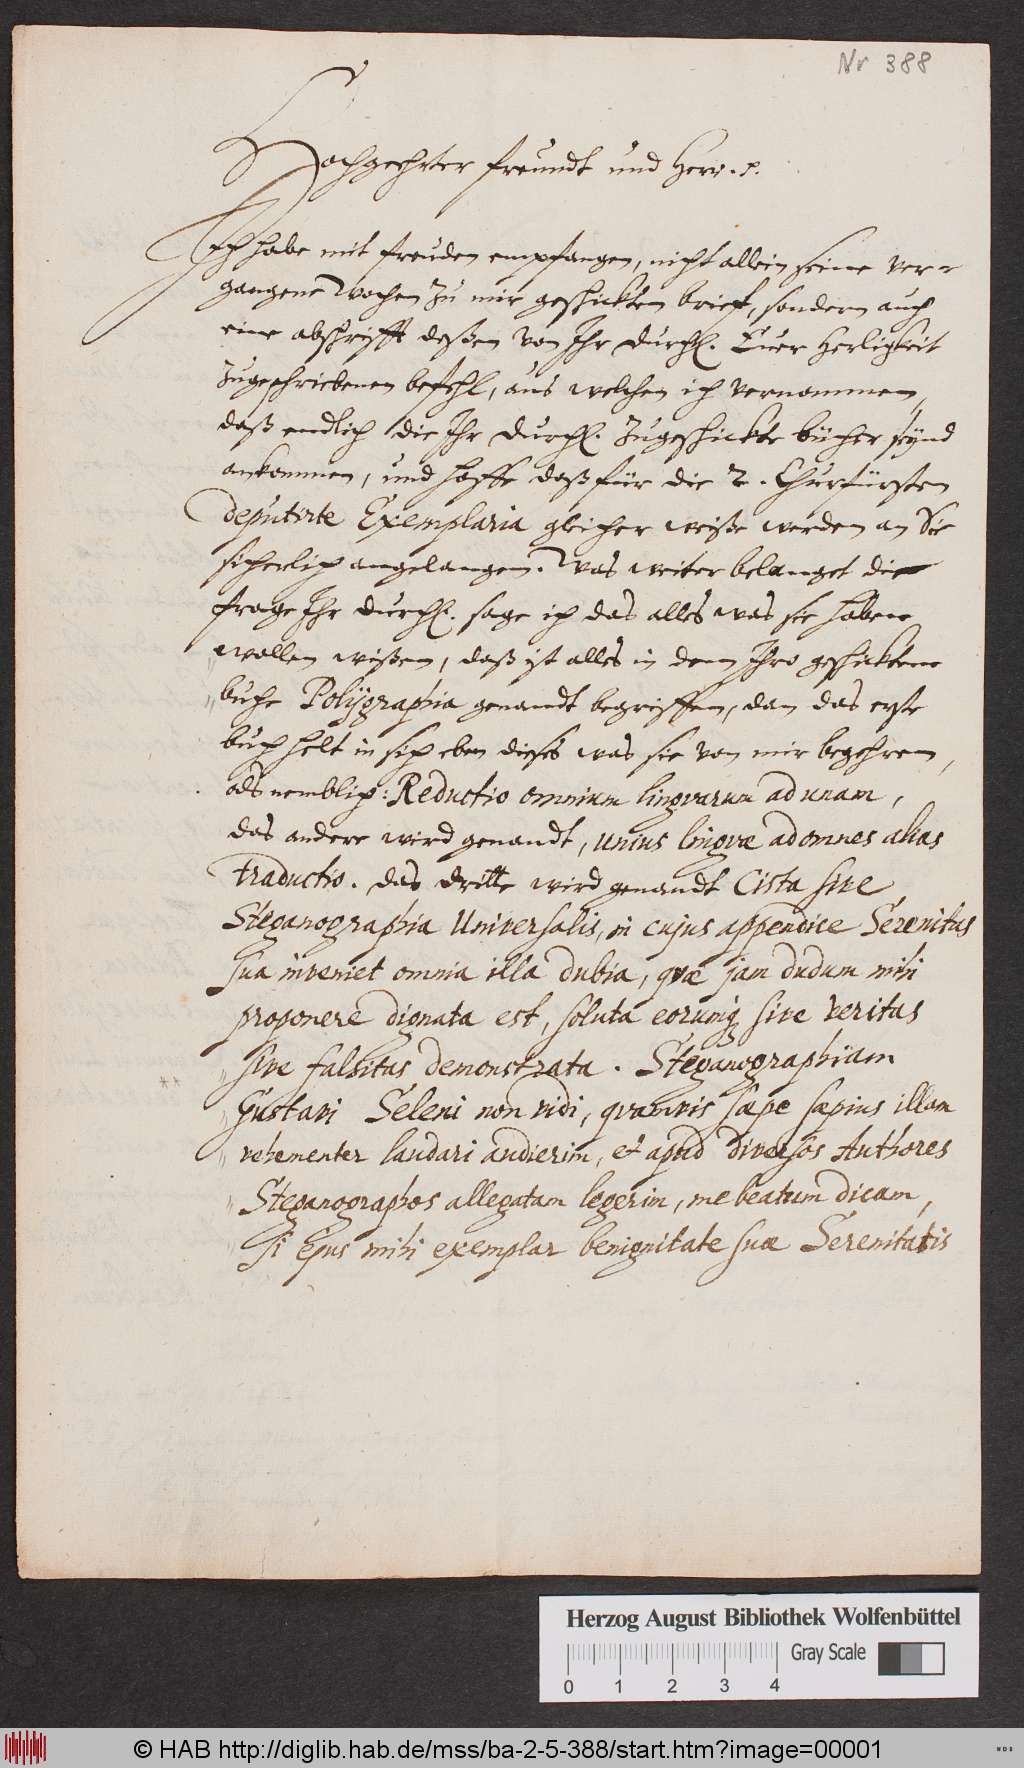 Nr 388
Hochgeehrter freundt und Herr. p.
Ich habe mit freuden empfangen, nicht allein seine ver-
gangene Wochen zu mir geschickten brieff, sondern auch
eine abschrifft deßen von Ihr Durchl. Euer Herligkeit
zugeschriebenen befehl, aus welchen ich vernommen,
daß endlich die Ihr Durchl. zugeschickte bücher seynd
ankommen, und hoffe daß für die 2. Churfürsten
deputirte Exemplaria gleicher weiße werden an Sie
sicherlich angelangen. Was weiter belanget die
frage Ihr Durchl. sage ich das alles was sie haben
wollen wißen, daß ist alles in dem Ihro geschickten
buche Polÿgraphia genandt begriffen, dan das erste
buch helt in sich eben dieses was sie von mir begehren,
als nemblich: Reductio omnium lingvarum ad unam,
das andere wird genandt, unius lingvæ ad omnes alias
traductio. das dritte wird genandt Cista sive
Steganographia Universalis, in cujus appendice Serenitas
sua inveniet omnia illa dubia, qvæ jam dudum mihi
proponere dignata est, soluta eorumq sive veritas
sive falsitas demonstrata. Steganographiam
Gustavi Seleni non vidi, qvamvis sæpe sæpius illam
vehementer laudari audierim, et apud diversos Authores
Steganographos allegatam legerim, me beatum dicam,
si ejus mihi exemplar benignitate suæ Serenitatis
Herzog August Bibliothek Wolfenbüttel
Gray Scale
0 1 2 3 4
© HAB http://diglib.hab.de/mss/ba-2-5-388/start.htm?image=00001